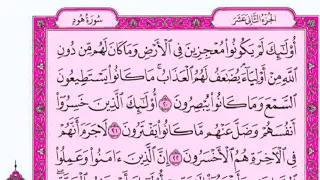 الجزء الثاني عشر
سورة هود
أُوْلَٰٓئِكَ لَمْ يَكُونُوا۟ مُعْجِزِينَ فِى ٱلْأَرْضِ وَمَا كَانَ لَهُم مِّن دُونِ
ٱللَّهِ مِنْ أَوْلِيَآءَ يُضَٰعَفُ لَهُمُ ٱلْعَذَابُ مَا كَانُوا۟ يَسْتَطِيعُونَ
ٱلسَّمْعَ وَمَا كَانُوا۟ يُبْصِرُونَ ٢٠ أُو۟لَٰٓئِكَ ٱلَّذِينَ خَسِرُوٓا۟
أَنفُسَهُمْ وَضَلَّ عَنْهُم مَّا كَانُوا۟ يَفْتَرُونَ ٢١ لَا جَرَمَ أَنَّهُمْ
فِى ٱلْأَخِرَةِ هُمُ ٱلْأَخْسَرُونَ ٢٢ إِنَّ ٱلَّذِينَ ءَامَنُوا۟ وَعَمِلُوا۟